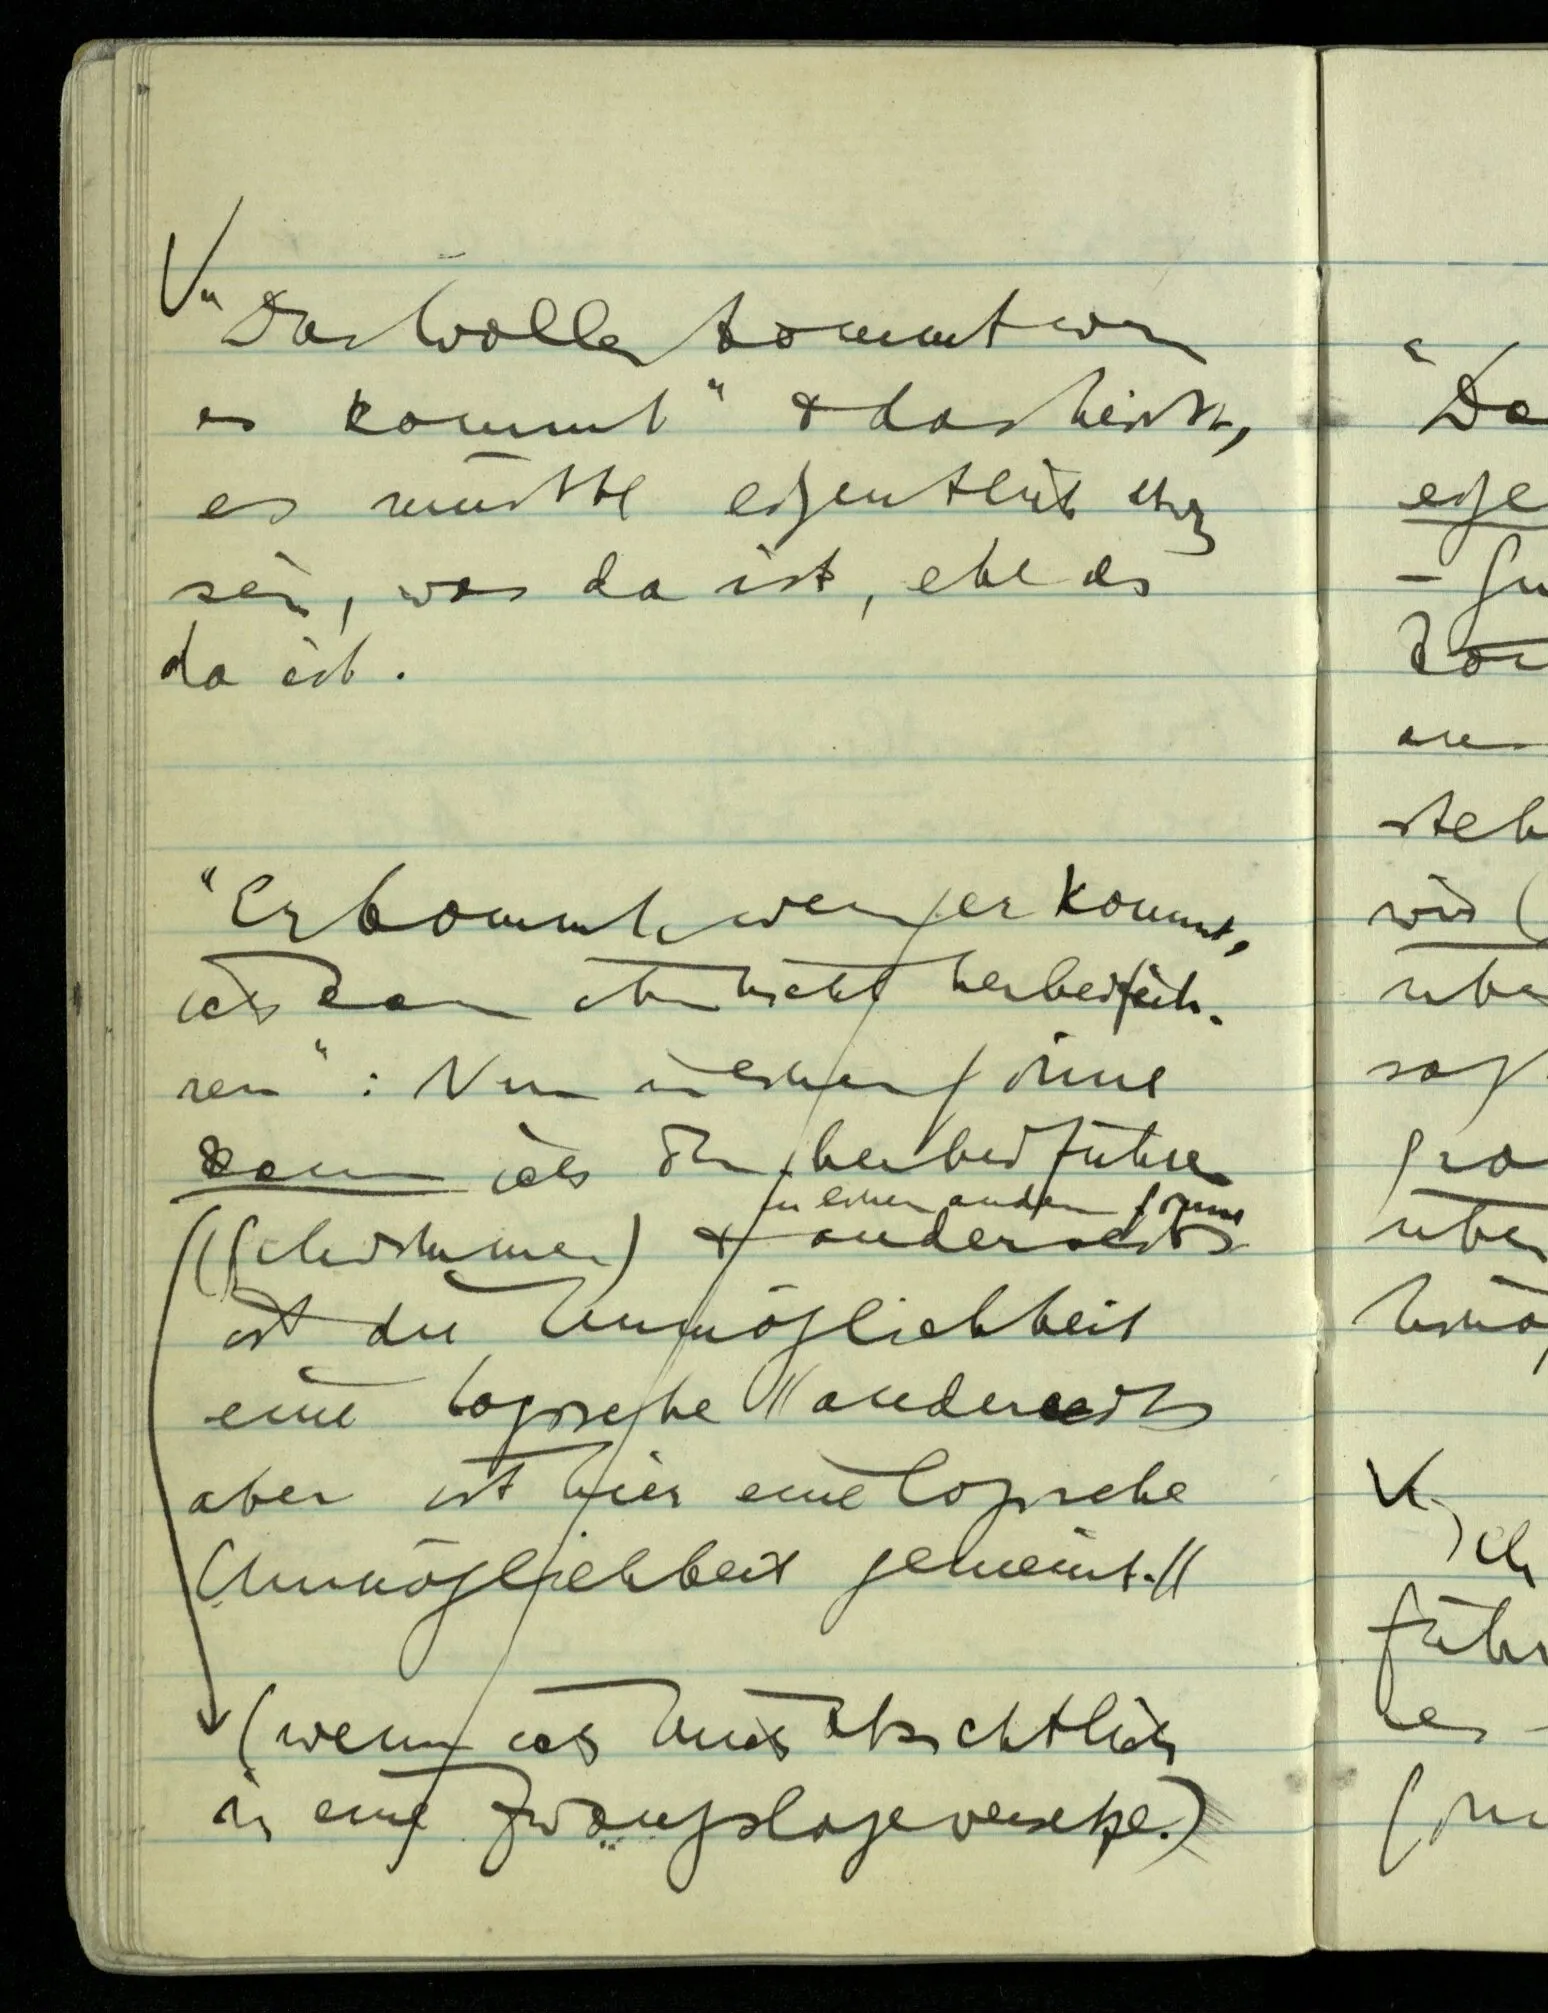 "Das Wollen kommt wenn
es kommt" & das heisst,
es müsste eigentlich etwas
sein, was da ist, ehe es
da ist.
"Er kommt wenn er kommt,
ich kann ihn nicht herbeifüh-
ren": Nun in einem Sinne
kann ich ihn herbeiführen
in einem andern Sinne
((Schwimmen) & anderseits
ist die Unmöglichkeit
eine logische // anderseits
aber ist hier eine logische
Unmöglichkeit gemeint.//
(wenn ich mich absichtlich
in eine Zwangslage versetze.)
"Da
eige
an
steh
wird (
übe
sag
gra
über
Ich
führ